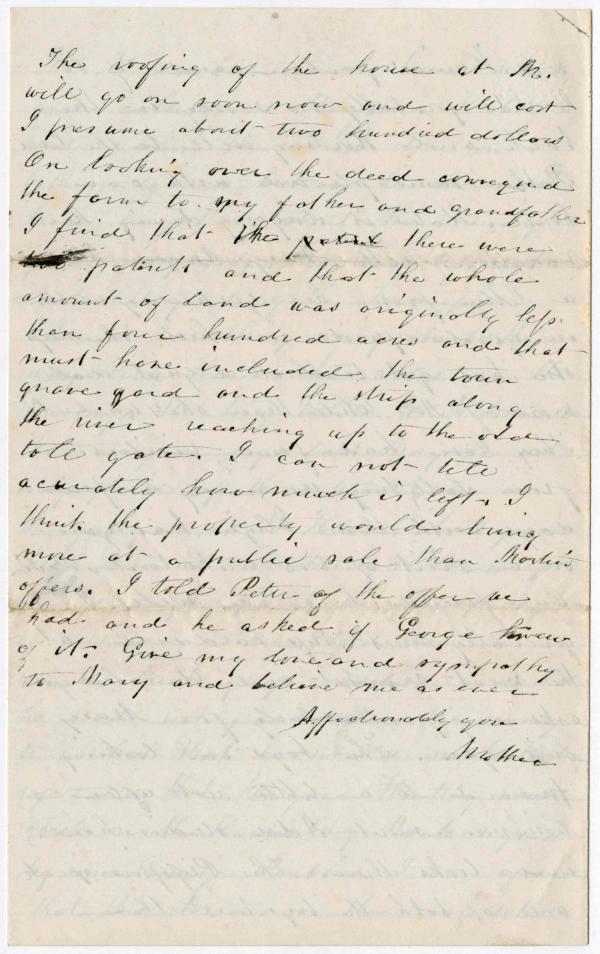 The roofing of the house at M.
will go on soon now and will cost
I presume about two hundred dollars
On looking over the deed conveyed
the farm to my father and grandfather
I find that the patent there were
two patents and that the whole
amount of land was originally less
than four hundred acres and that
must have included the town
grave yard and the strip along
the river reaching up to the old
toll gate. I can not tell
acurately how much is left. I
think the property would bring
more at a public sale than
offers. I told Peter of the offer we
had and he asked if George knew
of it. Give my love and sympathy
to Mary and believe me as ever
Affectionately your
Mother